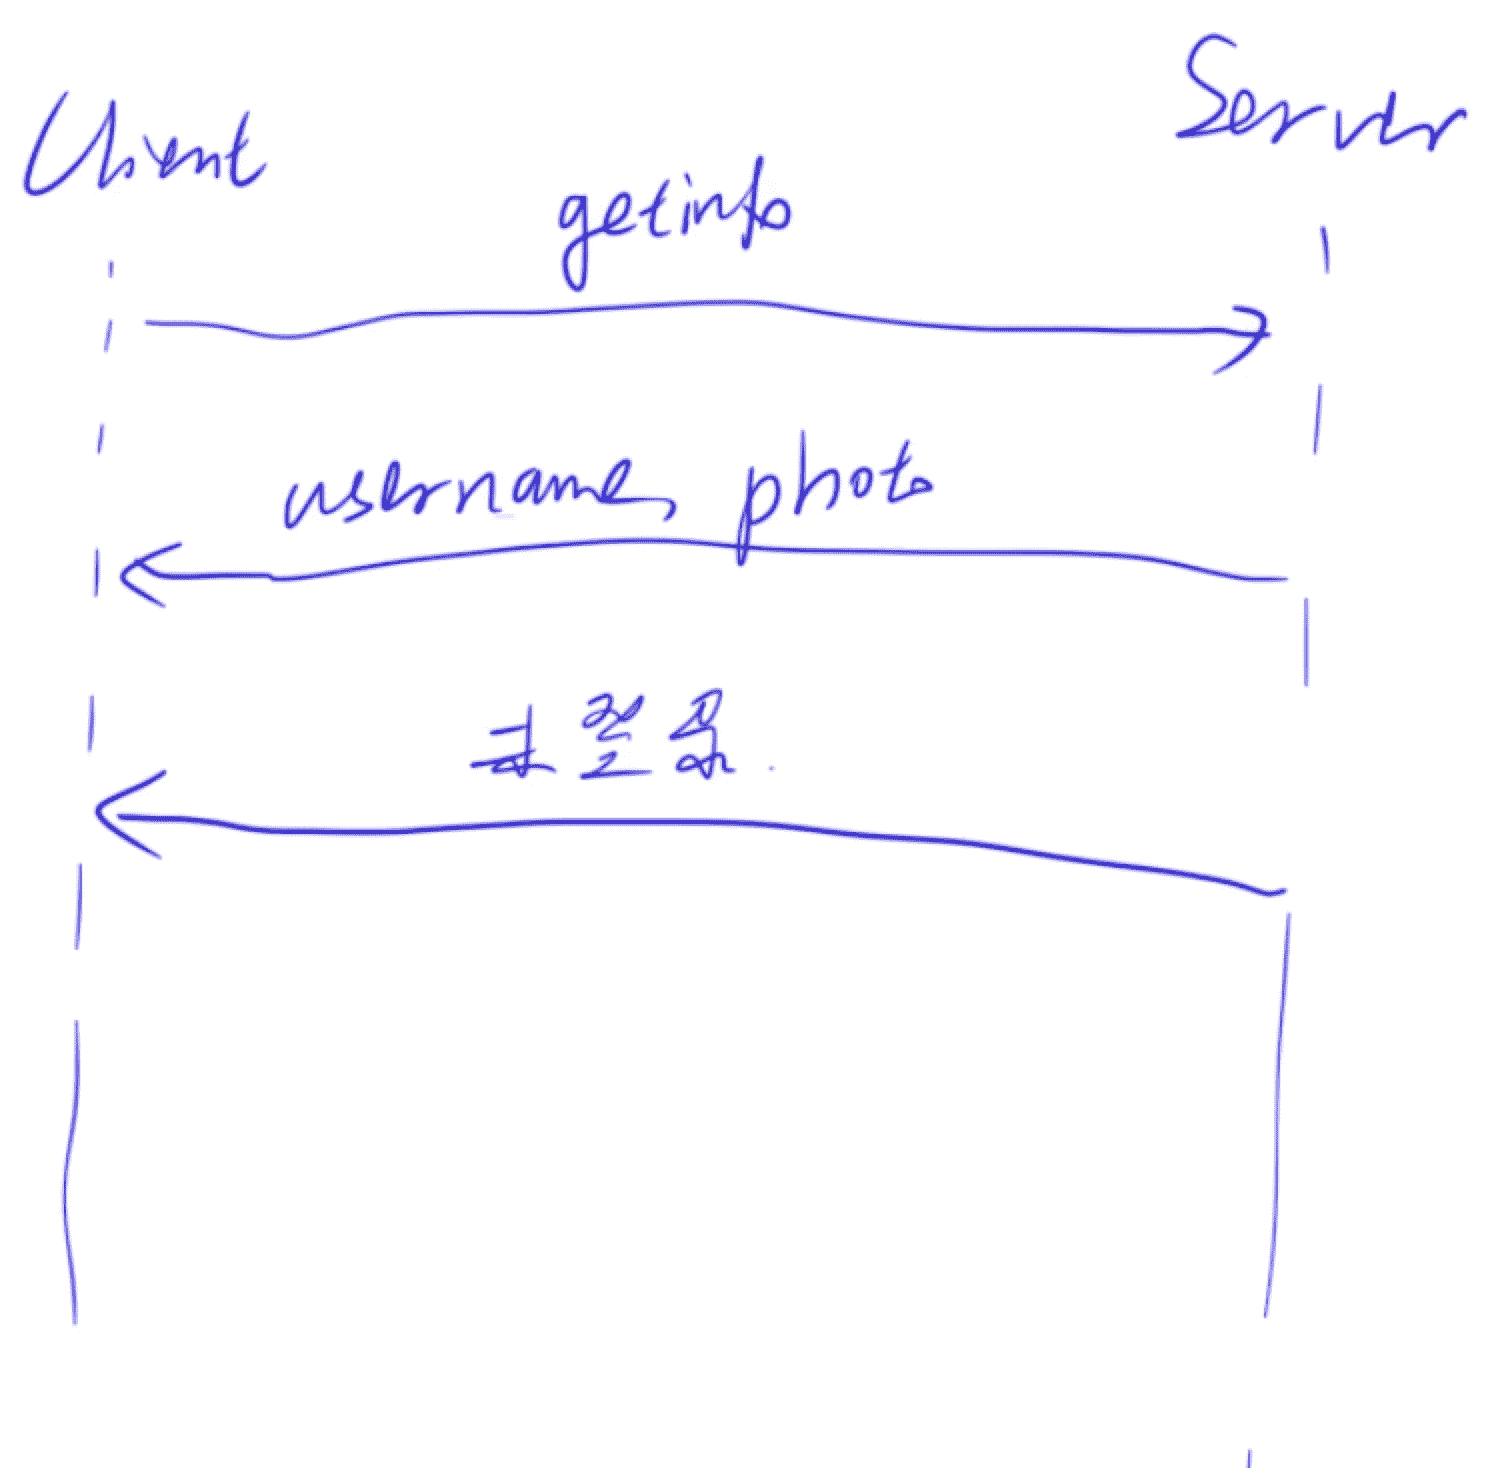 Client
Server
getinfo
username, photo
未登录